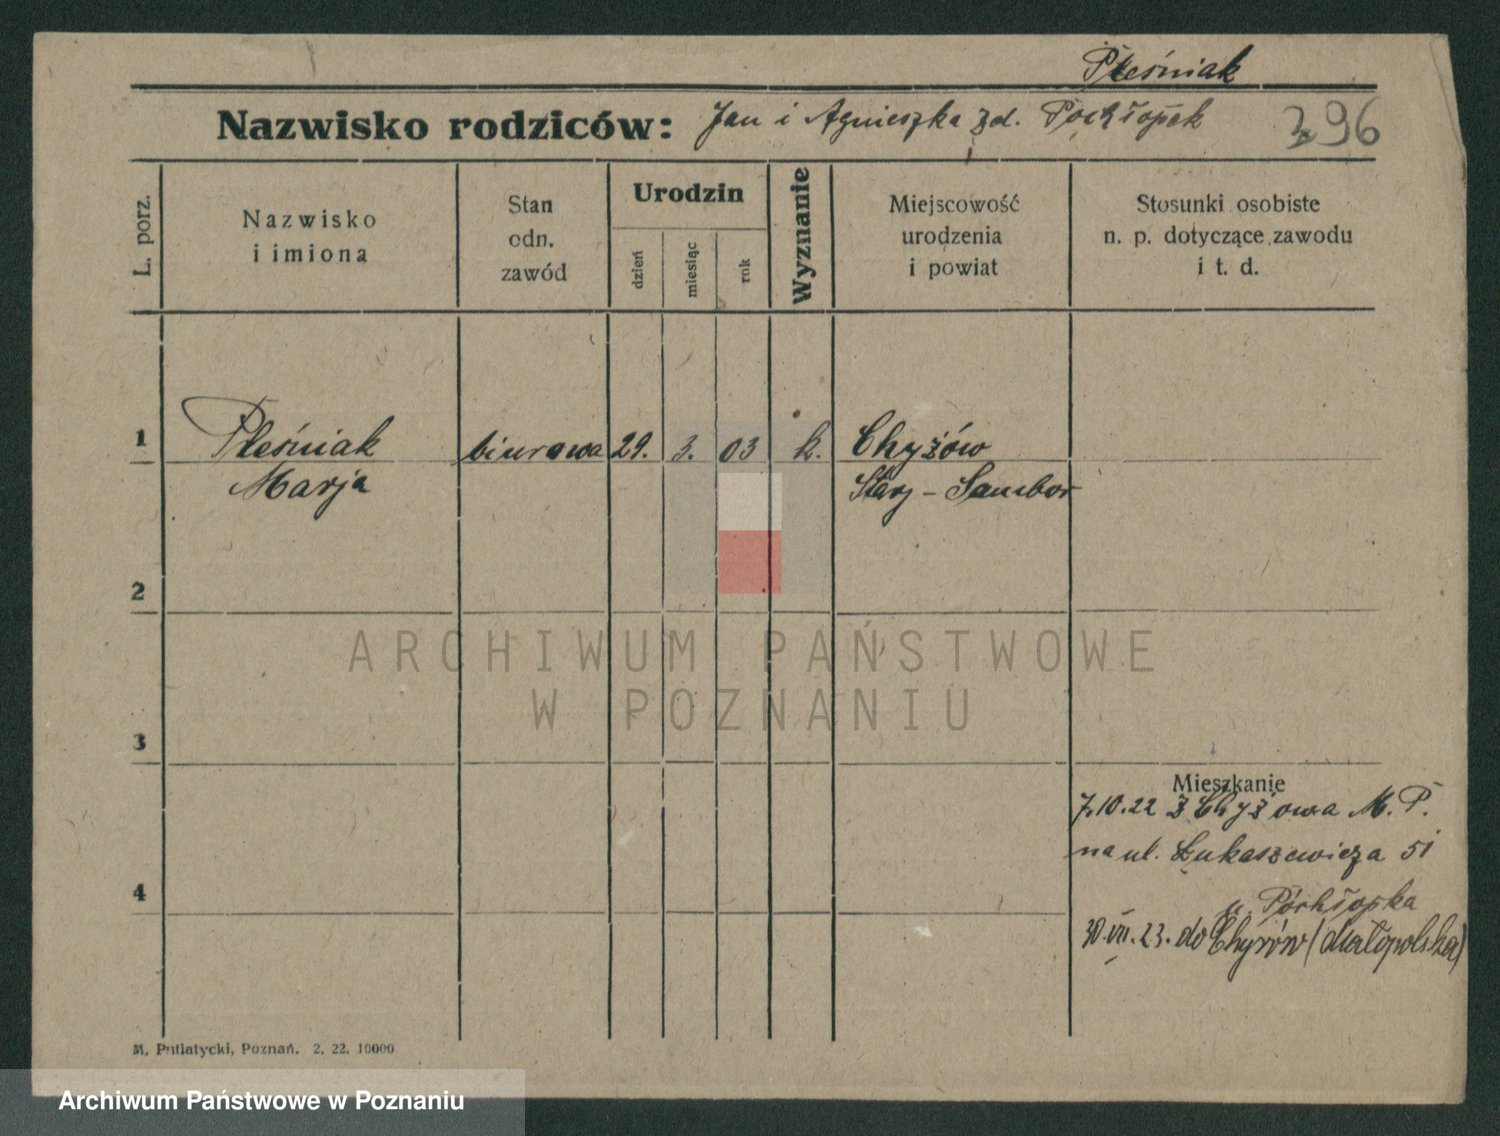 Pleśniak
Nazwisko rodziców: Jan i Agnieszka zd. Pochłopek
396
L. porz.
Nazwisko
i imiona
Stan
odn.
zawód
Urodzin
dzień
miesiąc
rok
Wyznanie
Miejscowość
urodzenia
i powiat
Stosunki osobiste
n. p. dotyczące zawodu
i t. d.
1 Pleśniak biurowa 29. 3. 03 k. Chyżów
Marja Stary - Sambor
2
ARCHIWUM PAŃSTWOWE
W POZNANIU
3
Mieszkanie
7.10.22 z Chyżowa M. P.
na ul. Łukaszewicza 51
4
u. Póchłopka
30.VII.23. do Chyrów (Małopolska)
M. Putiatycki, Poznań. 2. 22. 10000
Archiwum Państwowe w Poznaniu